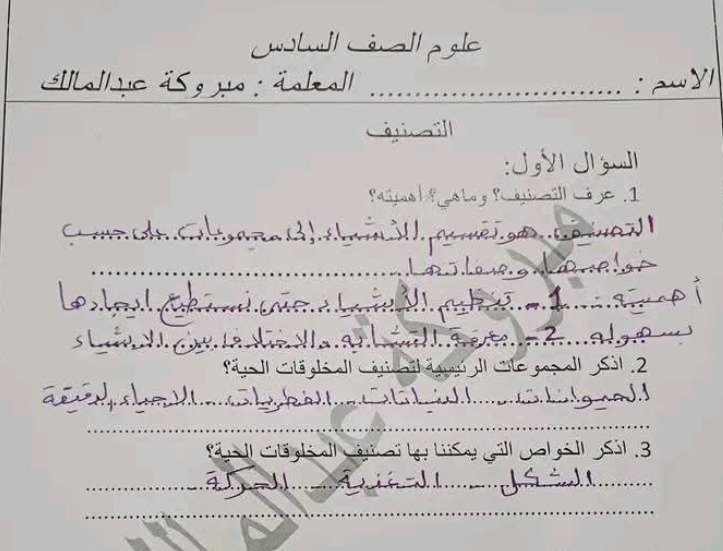 علوم الصف السادس
الاسم : ............................ المعلمة : مبروكة عبدالمالك
التصنيف
السؤال الأول:
1. عرف التصنيف؟ وماهي؟ أهميته؟
التصنيف هو تقسيم الأشياء إلى مجموعات على حسب
خواصها وصفاتها
أهميته 1- تنظيم الأشياء حتى نستطيع ايجادها
بسهوله 2- معرفة التشابه والاختلاف بين الاشياء
2. اذكر المجموعات الرئيسية لتصنيف المخلوقات الحية؟
الحيوانات - النباتات - الفطريات - الاحياء الدقيقة
3. اذكر الخواص التي يمكننا بها تصنيف المخلوقات الحية؟
الشكل - التغذية - الحركة
مبروكة عبدالمالك